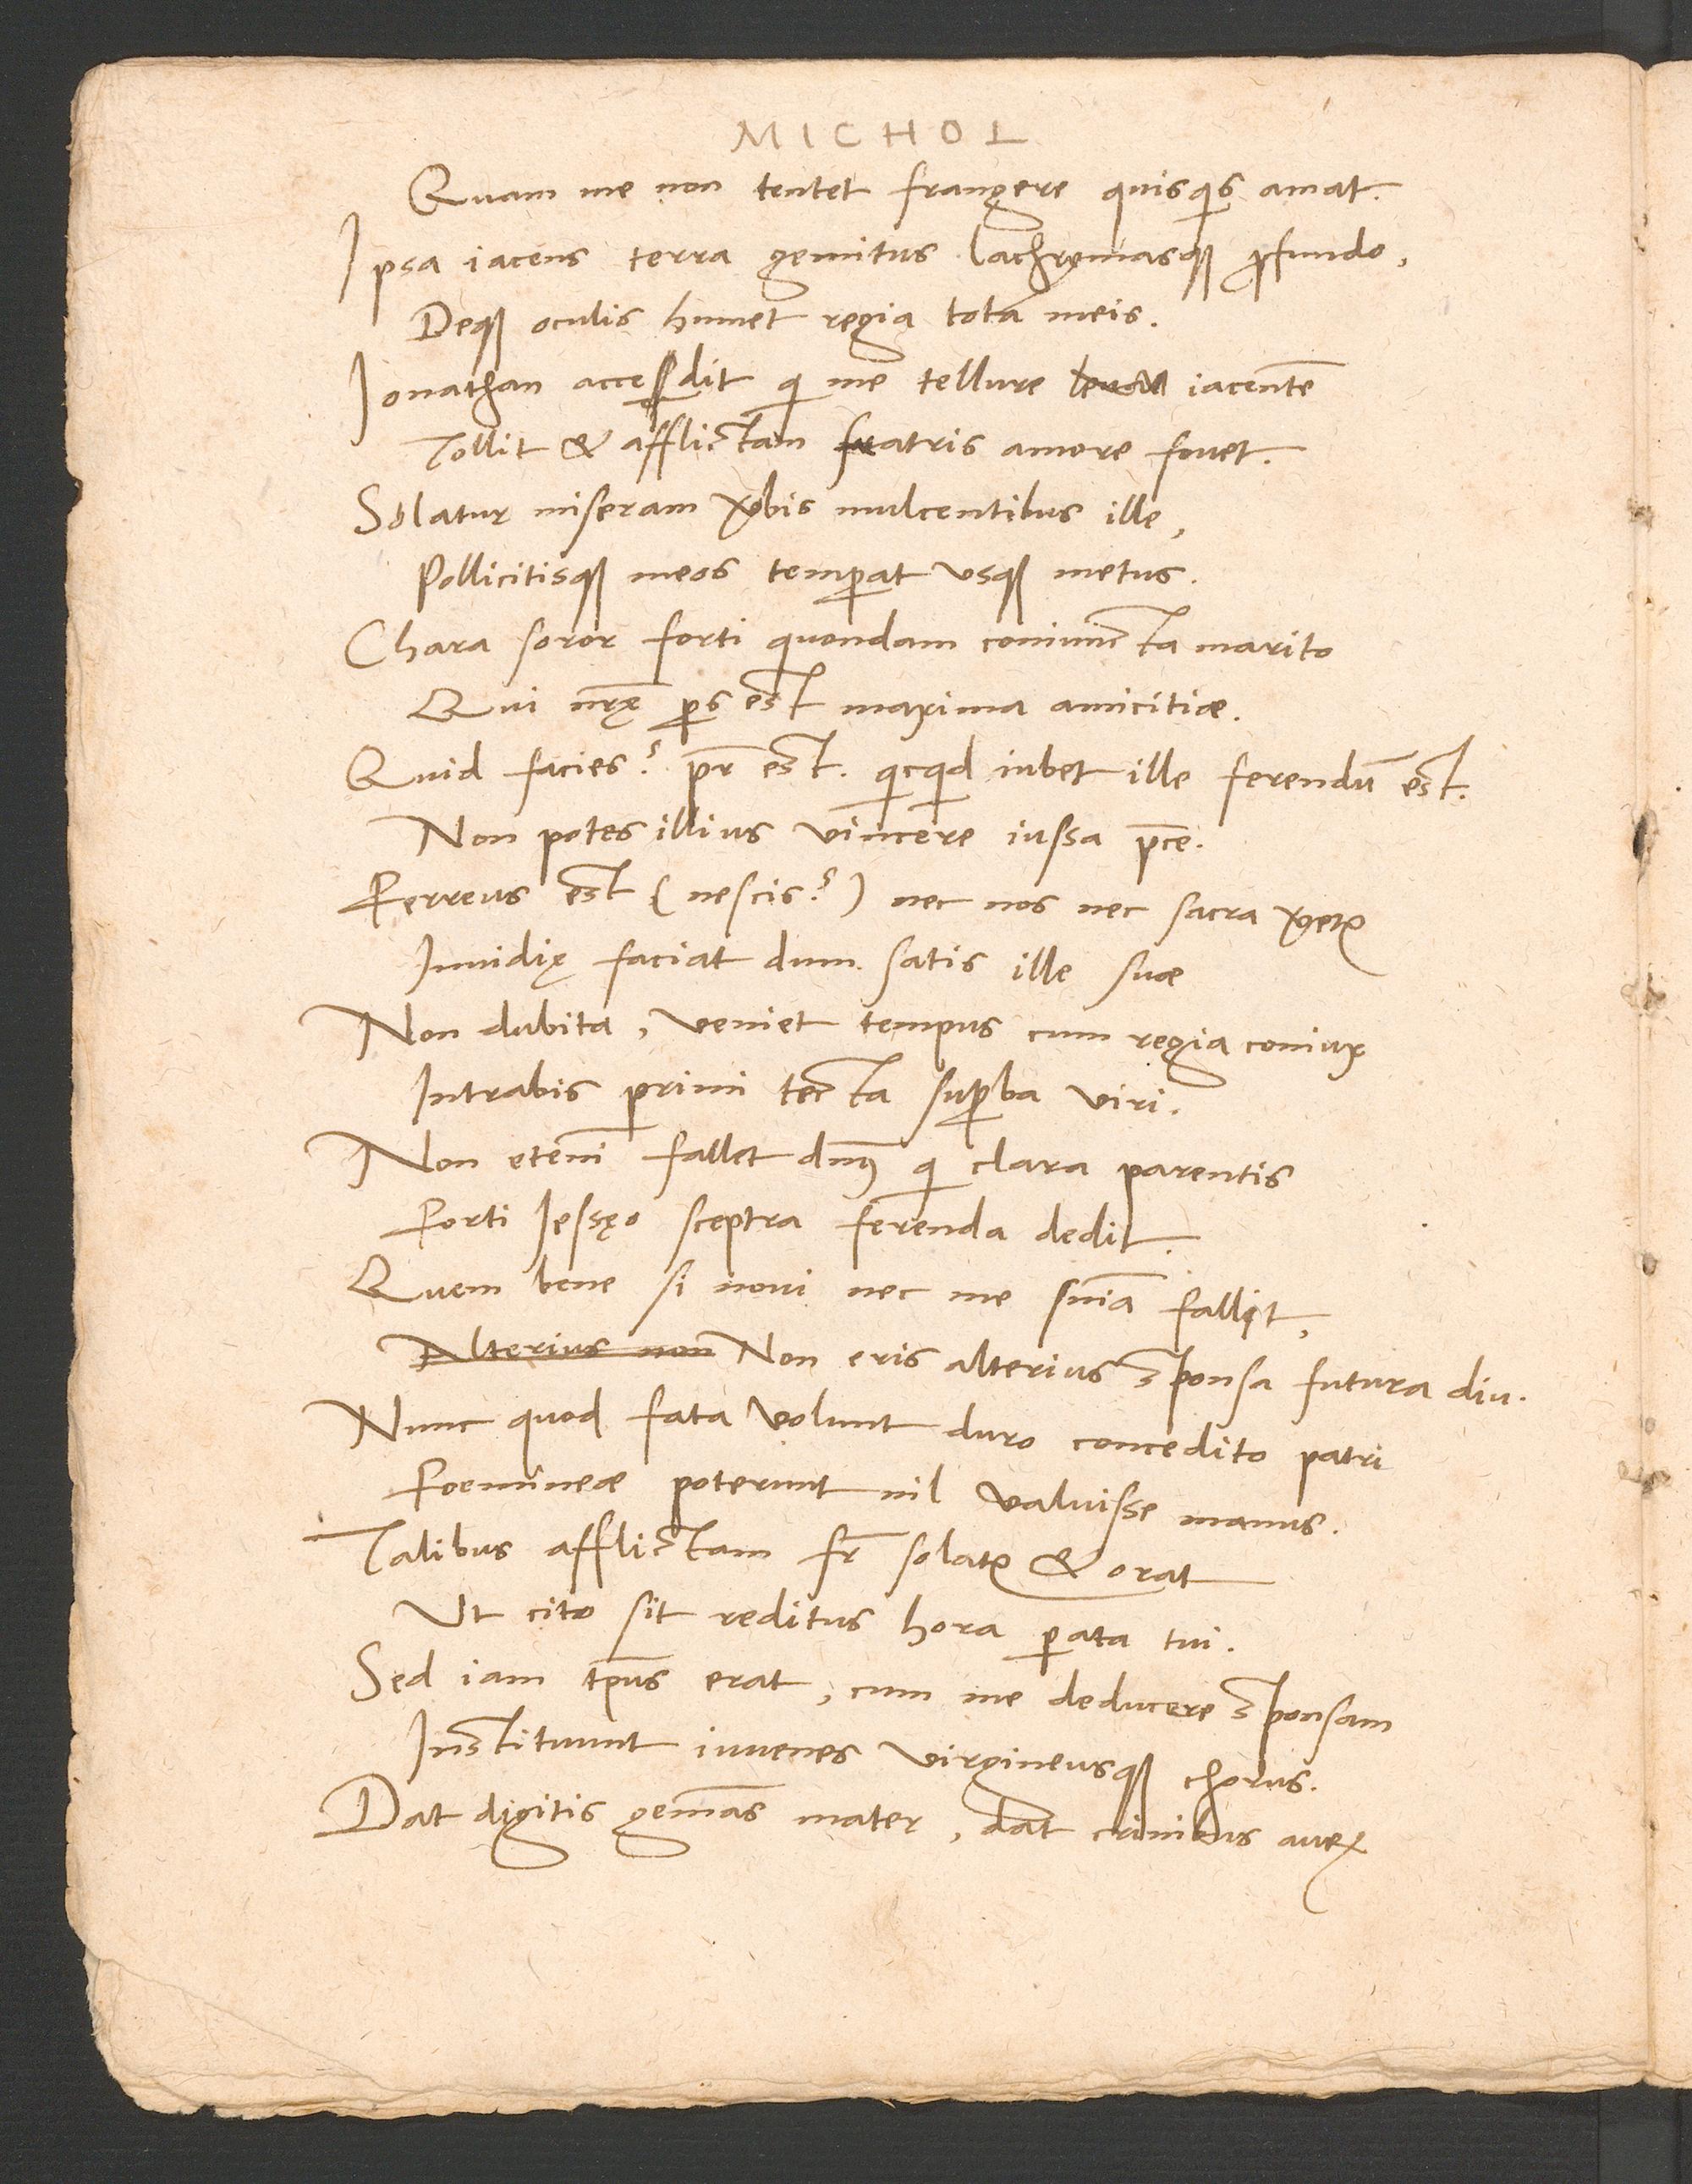 MICHOL
Quam me non tentet frangere quisqis amat.
Ipsa iacens terra gemitus lachrymasqꝫ ꝓfundo,
Deqꝫ oculis humet regia tota meis.
Ionathan accedit qi me tellure iacentē
Tollit & afflictam fratris amore fouet.
Solatur miseram v̄bis mulcentibus ille,
Pollicitisqꝫ meos temꝑat vsqꝫ metus.
Chara soror forti quondam coniuncta marito
Qui nrę̄ ꝑs est maxima amicitiæ.
Quid facies? pr̄ est. qicqid iubet ille ferendū est.
Non potes illius vincere iussa p̄ce.
Ferreus est (nescis?) nec nos nec sacra v̄etꝛ
Inuidię faciat dum satis ille suæ
Non dubita, veniet tempus cum regia coniux
Intrabis primi tecta suꝑba viri.
Non etenī fallet dnꝰ qi clara parentis
Forti Iessęo sceptra ferenda dedit.
Quem bene si noui nec me snīa fallit,
Alterius non Non eris alterius sponsa futura diu.
Nunc quod fata volunt duro concedito patri
Foemineæ poterunt nil valuisse manus.
Talibus afflictam fr̄ solatꝛ & orat
Ut cito sit reditus hora ꝑata tui.
Sed iam tp̄us erat, cum me deducere sponsam
Instituunt iuuenes virgineusqꝫ chorus.
Dat digitis gem̄as mater, dat crinibus auꝝ